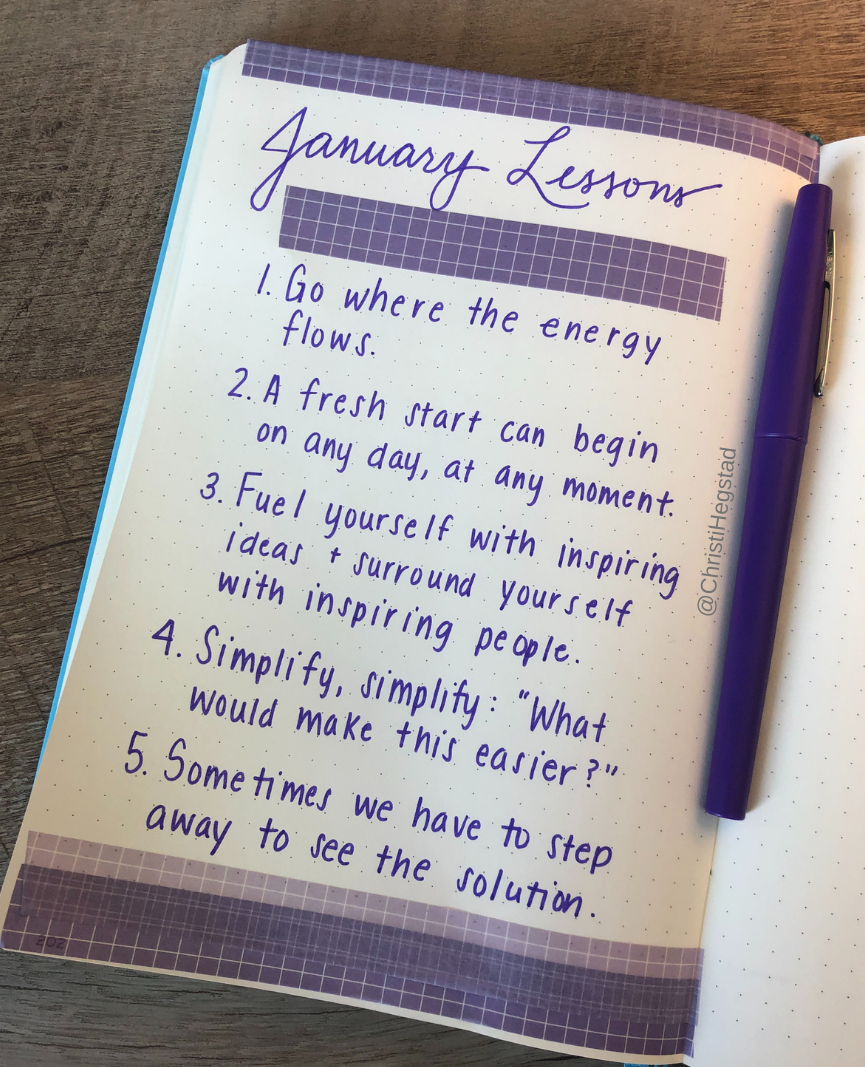 January Lessons
1. Go where the energy
flows.
2. A fresh start can begin
on any day, at any moment.
3. Fuel yourself with inspiring
ideas + surround yourself
with inspiring people.
4. Simplify, simplify: "What
would make this easier?"
5. Sometimes we have to step
away to see the solution.
@ChristiHegstad
202